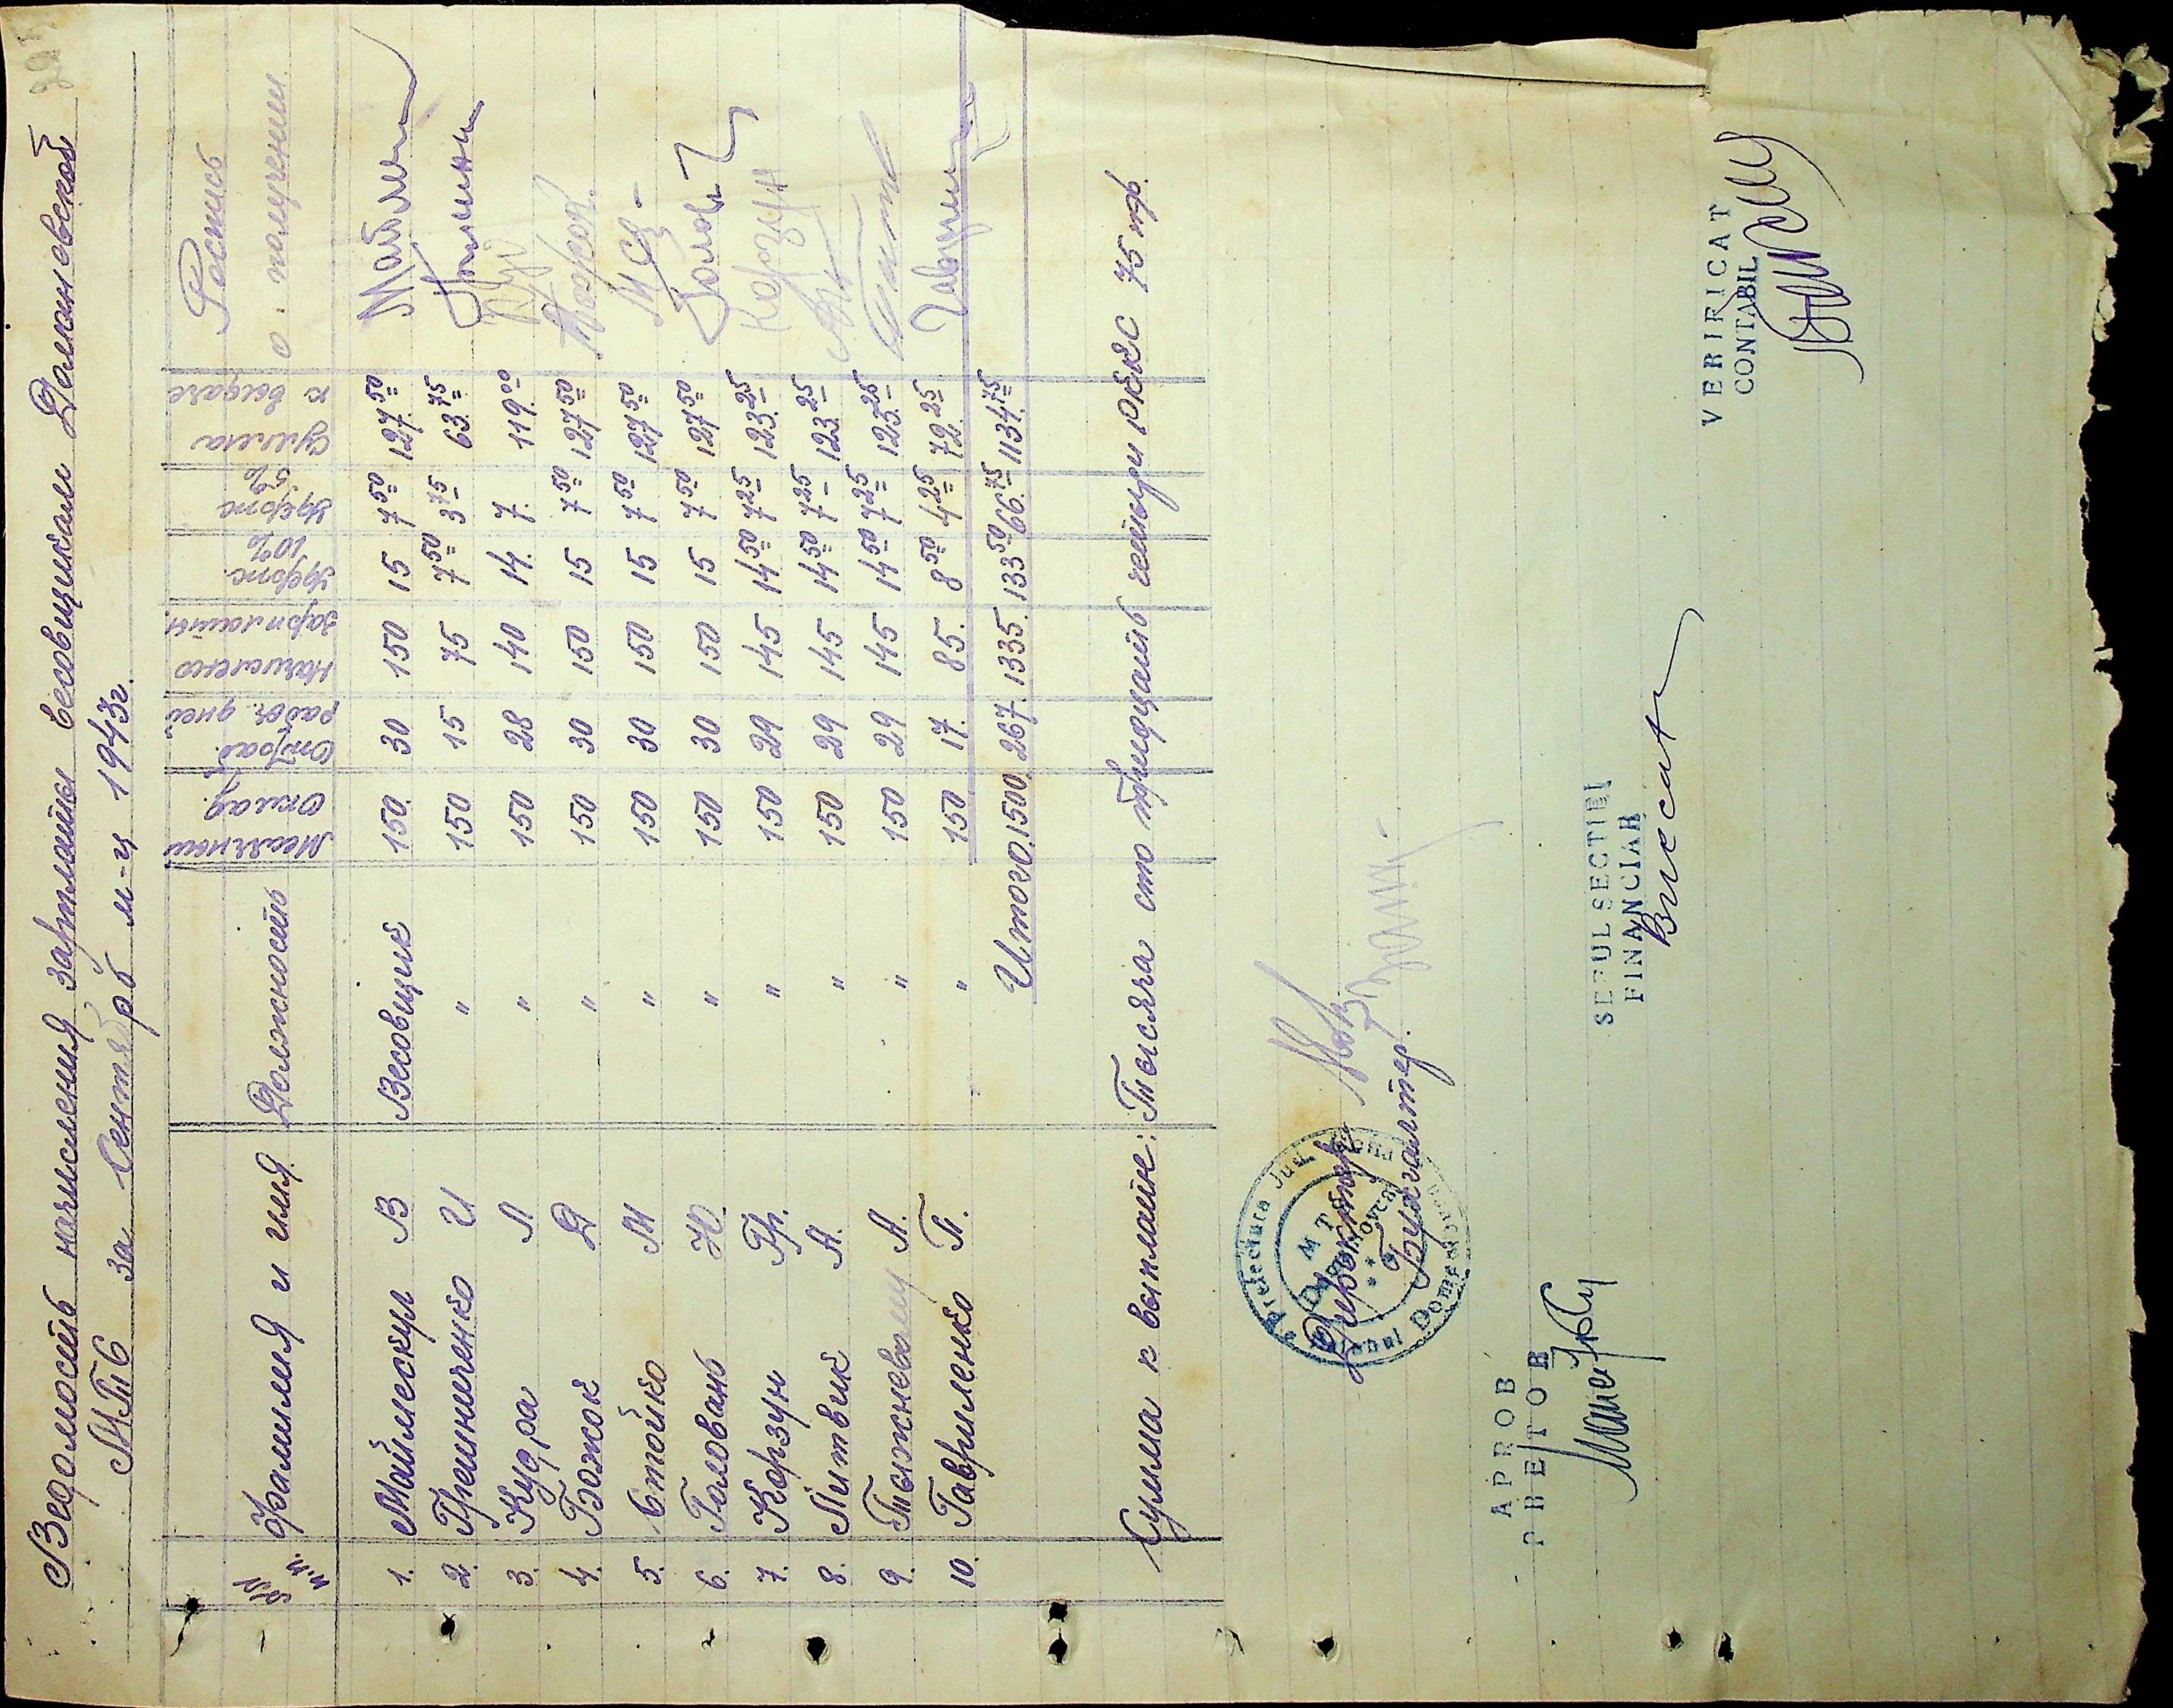 Ведомость начисления зарплаты весовщикам Доманевской
МТС за Сентябрь м-ц 1943г.
№№ п.п. Фамилия и имя Должность Месячный оклад. Отраб. рабоч. дней Начислено зарплаты Удерж. 10% Удерж. 5% Сумма к выдаче Роспись о получении
1. Маймескул В Весовщик 150. 30 150 15 7 50 127 50
2. Гречниченко И " 150 15 75 7 50 3 75 63 75
3. Кудра Л " 150 28 140 14. 7. 119. 00
4. Божок Д " 150 30 150 15 7 50 127 50
5. Стойко М " 150 30 150 15 7 50 127 50
6. Головань Ю. " 150 30 150 15 7 50 127 50
7. Корзун Гр. " 150 29 145 14 50 7 25 123 25 Корзун
8. Литвик А. " 150 29 145 14 50 7 25 123 25
9. А. " 150 29 145 14 50 7 25 123 25
10. Гавриленко П. " 150 17. 85. 8 50 4 25 72 25
Итого. 1500. 267. 1335. 133 50 66. 75 1134. 75
Сумма к выплате: Тысяча сто тридцать четыри РОККС 75 пф.
Prefectura Jud.
M T S
Директор
Бухгалтер.
APROB
PRETOR
SEFUL SECTIEI
FINANCIAR
VERIRICAT
CONTABIL